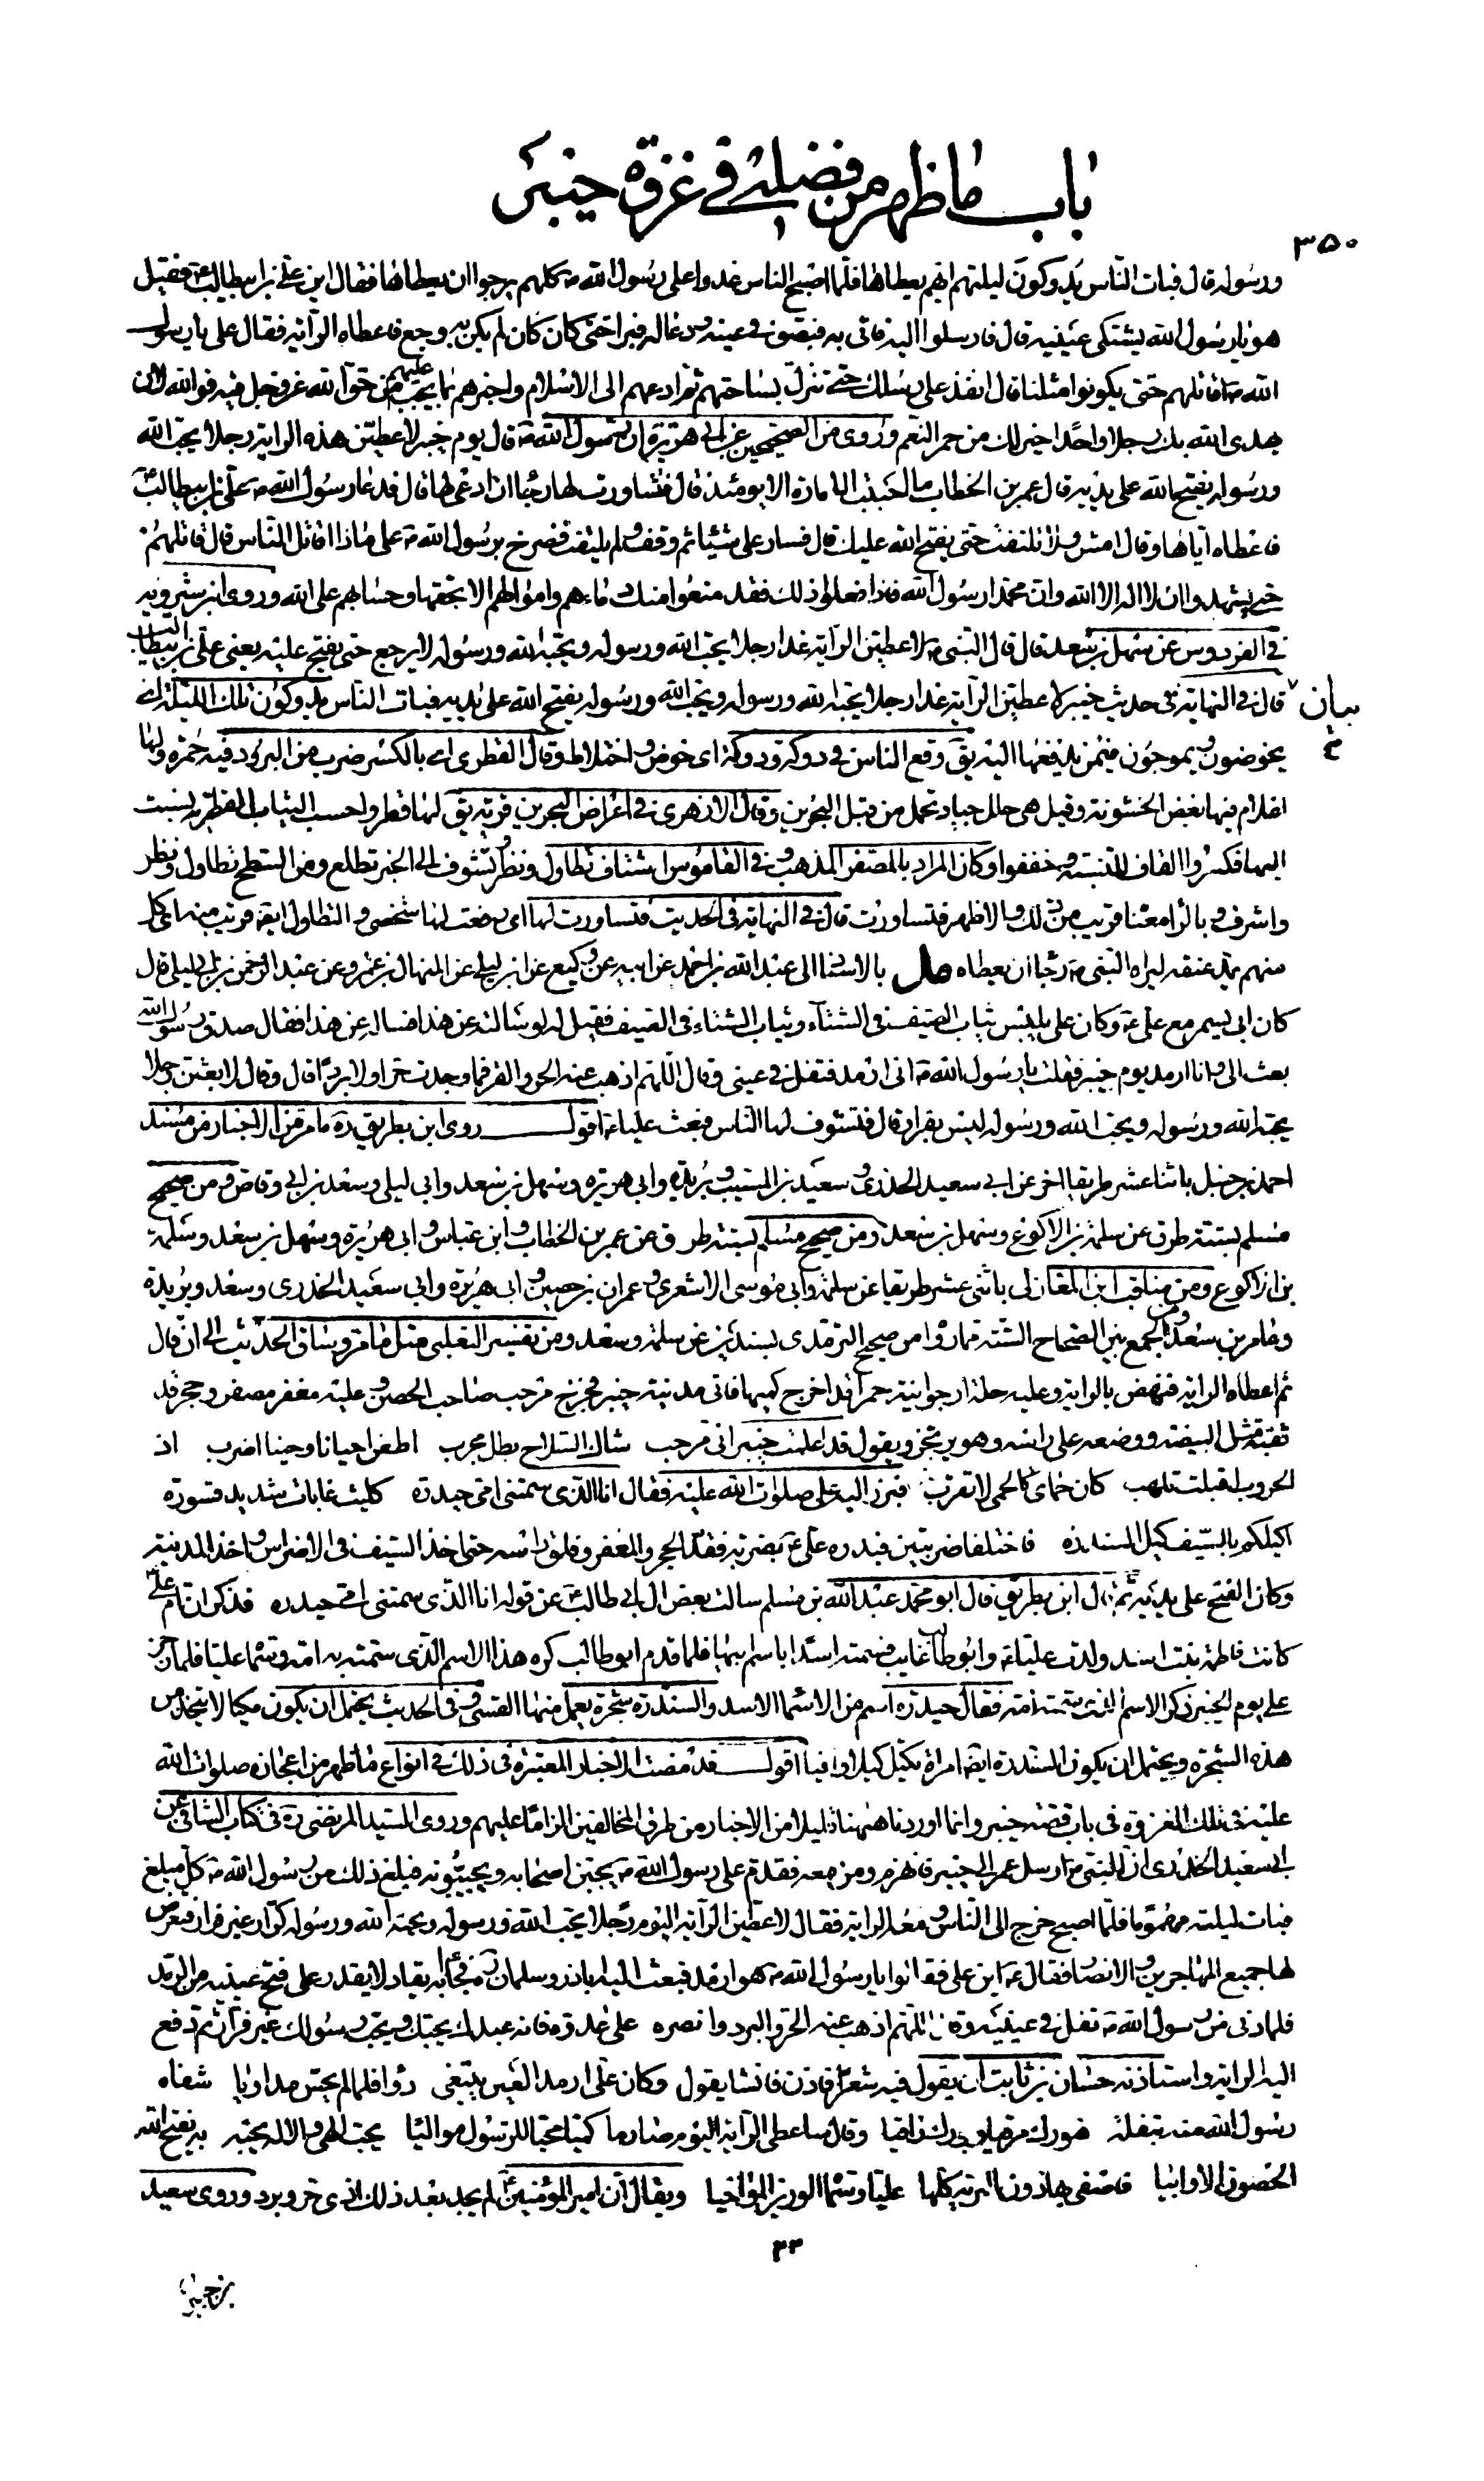 باب ما ظهر من فضله في غزوة خيبر
٣٥٠
ورسوله قال فبات الناس يدوكون ليلتهم ايهم يعطاها فلما اصبح الناس غدوا على رسول الله ص كلهم يرجوا ان يعطاها فقال اين علي بن ابيطالب ع فقيل
هو يا رسول الله يشتكي عينيه قال فارسلوا اليه فاتى به فبصق في عينه ودعا له فبرا حتى كان كان لم يكن به وجع فاعطاه الراية فقال علي يا رسول
الله ص اقاتلهم حتى يكونوا مثلنا قال انفذ على رسلك حتى تنزل بساحتهم ثم ادعهم الى الاسلام واخبرهم بما يجب عليهم من حق الله عز وجل فيه فوالله لان
يهدى الله بك رجلا واحدا خير لك من حمر النعم وروى من الصحيحين عن ابي هريرة ان رسول الله ص قال يوم خيبر لاعطين هذه الراية رجلا يحب الله
ورسوله يفتح الله على يديه قال عمر بن الخطاب ما احببت الامارة الا يومئذ قال فتساورت لها رجاء ان ادعى لها قال فدعا رسول الله ص علي بن ابيطالب ع
فاعطاه اياها وقال امش ولا تلتفت حتى يفتح الله عليك قال فسار علي شيئا ثم وقف ولم يلتفت فصرخ يا رسول الله ص على ماذا اقاتل الناس قال قاتلهم
حتى يشهدوا ان لا اله الا الله وان محمدا رسول الله فاذا فعلوا ذلك فقد منعوا منك دماءهم واموالهم الا بحقها وحسابهم على الله وروى ابن شيرويه
في الفردوس عن سهل بن سعد قال قال النبي ص لاعطين الراية غدا رجلا يحب الله ورسوله ويحبه الله ورسوله لا يرجع حتى يفتح عليه يعني علي بن ابيطالب
بيان قال في النهاية في حديث خيبر لاعطين الراية غدا رجلا يحبه الله ورسوله ويحب الله ورسوله يفتح الله على يديه فبات الناس يدوكون تلك الليلة اي
يخوضون ويموجون فيمن يدفعها اليه يق وقع الناس في دوكة ودوكة اى خوض واختلاط وقال القطرى اي بالكسر ضرب من البرود فيه حمرة ولها
اعلام فيها بعض الخشونة وقيل هى حلل جياد تحمل من قبل البحرين وقال الازهرى في اعراض البحرين قرية يق لها قطر واحسب الثياب القطرية نسبت
اليها فكسروا القاف للنسبة وخففوا وكان المراد بالمصفر المذهب وفي القاموس اشتاف تطاول ونظر وتشوف الى الخبر تطلع ومن السطح تطاول ونظر
واشرف وبالرا معنا قريب من ذلك والاظهر فتساورت قال في النهاية في الحديث فتساورت لها اى رفعت لها شخصى والتطاول ايضا قريب منه اى كل
منهم يمد عنقه ليراه النبي ص رجا ان يعطاه مل بالاسناد الى عبد الله بن احمد عن ابيه عن وكيع عن ابن ابي ليلى عن المنهال بن عمرو عن عبد الرحمن بن ابي ليلى قال
كان ابي يسمر مع علي ع وكان علي يلبس ثياب الصيف في الشتاء وثياب الشتاء في الصيف فقيل له لو سالته عن هذا فساله عن هذا فقال صدق رسول الله
بعث الى وانا ارمد يوم خيبر فقلت يا رسول الله ص اني ارمد فتفل في عيني وقال اللهم اذهب عنه الحر والقر فما وجدت حرا ولا بردا قال وقال لابعثن رجلا
يحبه الله ورسوله ويحب الله ورسوله ليس بفرار قال فتشوف لها الناس فبعث عليا ع اقول روى ابن بطريق ره ما مر من الاخبار من مسند
احمد بن حنبل باثنا عشر طريقا اخر عن ابي سعيد الخدري وسعيد بن المسيب وبريدة وابي هريرة وسهل بن سعد وابي ليلى وسعد بن ابي وقاص ومن صحيح
مسلم بستة طرق عن سلمة بن الاكوع وسهل بن سعد ومن صحيح مسلم بستة طرق عن عمر بن الخطاب وابن عباس وابي هريرة وسهل بن سعد وسلمة
بن الاكوع ومن مناقب ابن المغازلي باثني عشر طريقا عن سلمة وابي موسى الاشعري وعمران بن حصين وابي هريرة وابي سعيد الخدري وسعد وبريدة
وعامر بن سعد ومن الجمع بين الصحاح الستة مما رواه من صحيح الترمذى بسندين عن سلمة وسعد ومن تفسير الثعلبي مثل ما مر وساق الحديث الى ان قال
ثم اعطاه الراية فنهض بالراية وعليه حلة ارجوانية حمراء قد اخرج كميها فاتى مدينة خيبر فخرج مرحب صاحب الحصن وعليه مغفر مصفر وحجر قد
ثقبه مثل البيضة ووضعه على راسه وهو يرتجز ويقول قد علمت خيبر انى مرحب شاك السلاح بطل مجرب اطعن احيانا وحينا اضرب اذ
الحروب اقبلت تلهب كان حماى كالحمى لا تقرب فبرز اليه علي صلوات الله عليه فقال انا الذى سمتني امى حيدرة كليث غابات شديد قسورة
اكيلكم بالسيف كيل السندره فاختلفا ضربتين فبدره علي ع بضربة فقد الحجر والمغفر وفلق راسه حتى اخذ السيف في الاضراس واخذ المدينة
وكان الفتح على يديه ثم قال ابن بطريق قال ابو محمد عبد الله بن مسلم سالت بعض ال ابي طالب عن قوله انا الذى سمتنى امى حيدره فذكر ان ام علي ع
كانت فاطمة بنت اسد ولدت عليا ع وابو طالب غايب فسمته اسدا باسم ابيها فلما قدم ابو طالب كره هذا الاسم الذى سمته به امه وسماه عليا فلما رجز
علي يوم خيبر ذكر الاسم الذى سمته امه فقال حيدره اسم من الاسما الاسد والسندره شجرة يعمل منها القسى وفي الحديث يحتمل ان يكون مكيالا يتخذ من
هذه الشجرة ويحتمل ان يكون السندره ايضا امراة تكيل كيلا وافيا اقول قد مضت الاخبار المعتبرة في ذلك في انواع ما ظهر من اعجازه صلوات الله
عليه في تلك الغزوة في باب قصة خيبر وانما اوردنا هيهنا قليلا من الاخبار من طرق المخالفين الزاما عليهم وروى السيد المرتضى ره في كتاب الشافى عن
ابي سعيد الخدرى ان النبي ص ارسل عمر الى خيبر فانهزم ومن معه فقدم على رسول الله ص يجبن اصحابه ويجبنونه فبلغ ذلك من رسول الله ص كل مبلغ
فبات ليلته مهموما فلما اصبح خرج الى الناس ومعه الراية فقال لاعطين الراية اليوم رجلا يحب الله ورسوله ويحبه الله ورسوله كرار غير فرار فتعرض
لها جميع المهاجرين والانصار فقال ع اين علي فقالوا يا رسول الله ص هو ارمد فبعث اليه ابا ذر وسلمان ره فجاءا به يقاد لا يقدر على فتح عينيه من الرمد
فلما دنى من رسول الله ص تفل في عينيه وقال اللهم اذهب عنه الحر والبرد وانصره على عدوه فانه عبدك يحبك ويحب رسولك غير فرار ثم دفع
اليه الراية واستاذنه حسان بن ثابت ان يقول فيه شعرا فاذن فانشا يقول وكان علي ارمد العين يبتغى دواء فلما لم يحس مداويا شفاه
رسول الله منه بتفلة فبورك مرقيا وبورك راقيا وقال ساعطى الراية اليوم صارما كميا محبا للرسول مواليا يحب الهي والاله يحبه به يفتح الله
الحصون الاوابيا فاصفى بها دون البرية كلها عليا وسماه الوزير المؤاخيا ويقال ان امير المؤمنين ع لم يجد بعد ذلك اذى حر وبرد وروى سعيد
بن جبير